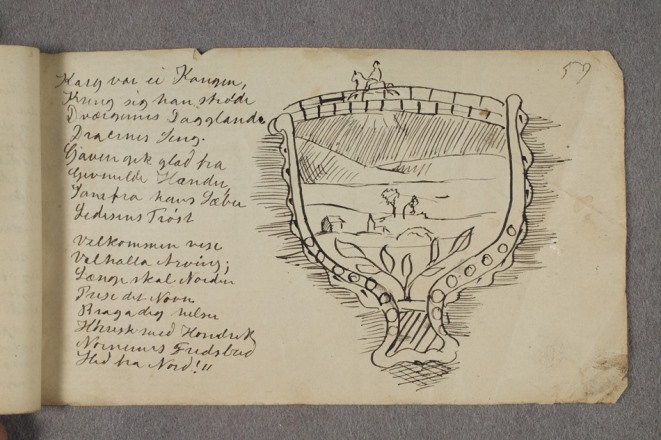 Karg var ei Kongen,
Kring sig han strøde
Dværgenes Dagglands
Draernes Seng.
Gaven gik glad fra
Givmilde Hænder,
Sang fra hans Læber
Ledsens Trøst
Velkommen vise
Valhalla Arving;
Længe skal Norden
Prise det Navn
Braga dig hilse
Hersk med Hondrik
Nornens Fredsbud
Hid fra Nord!"
57